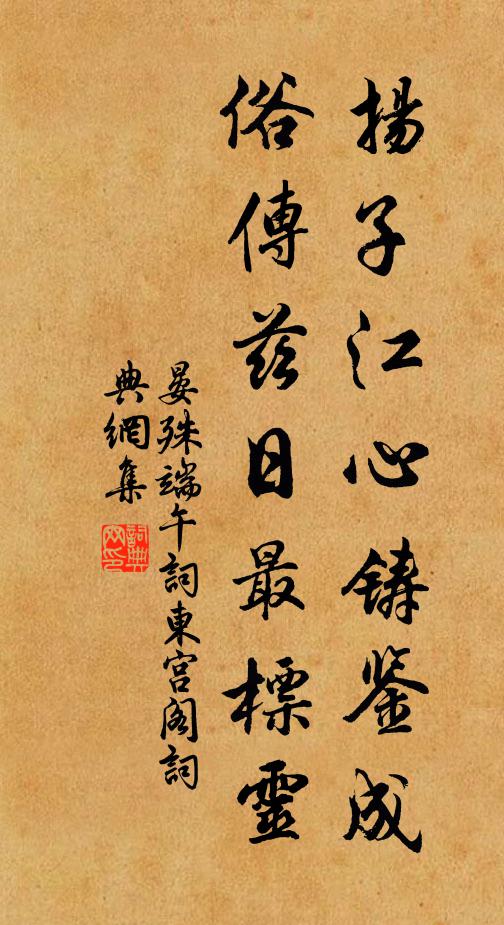 揚子江心铸鉴成
俗傳茲日最標靈
晏殊端午詞東宮阁詞
典網集
詞典网印